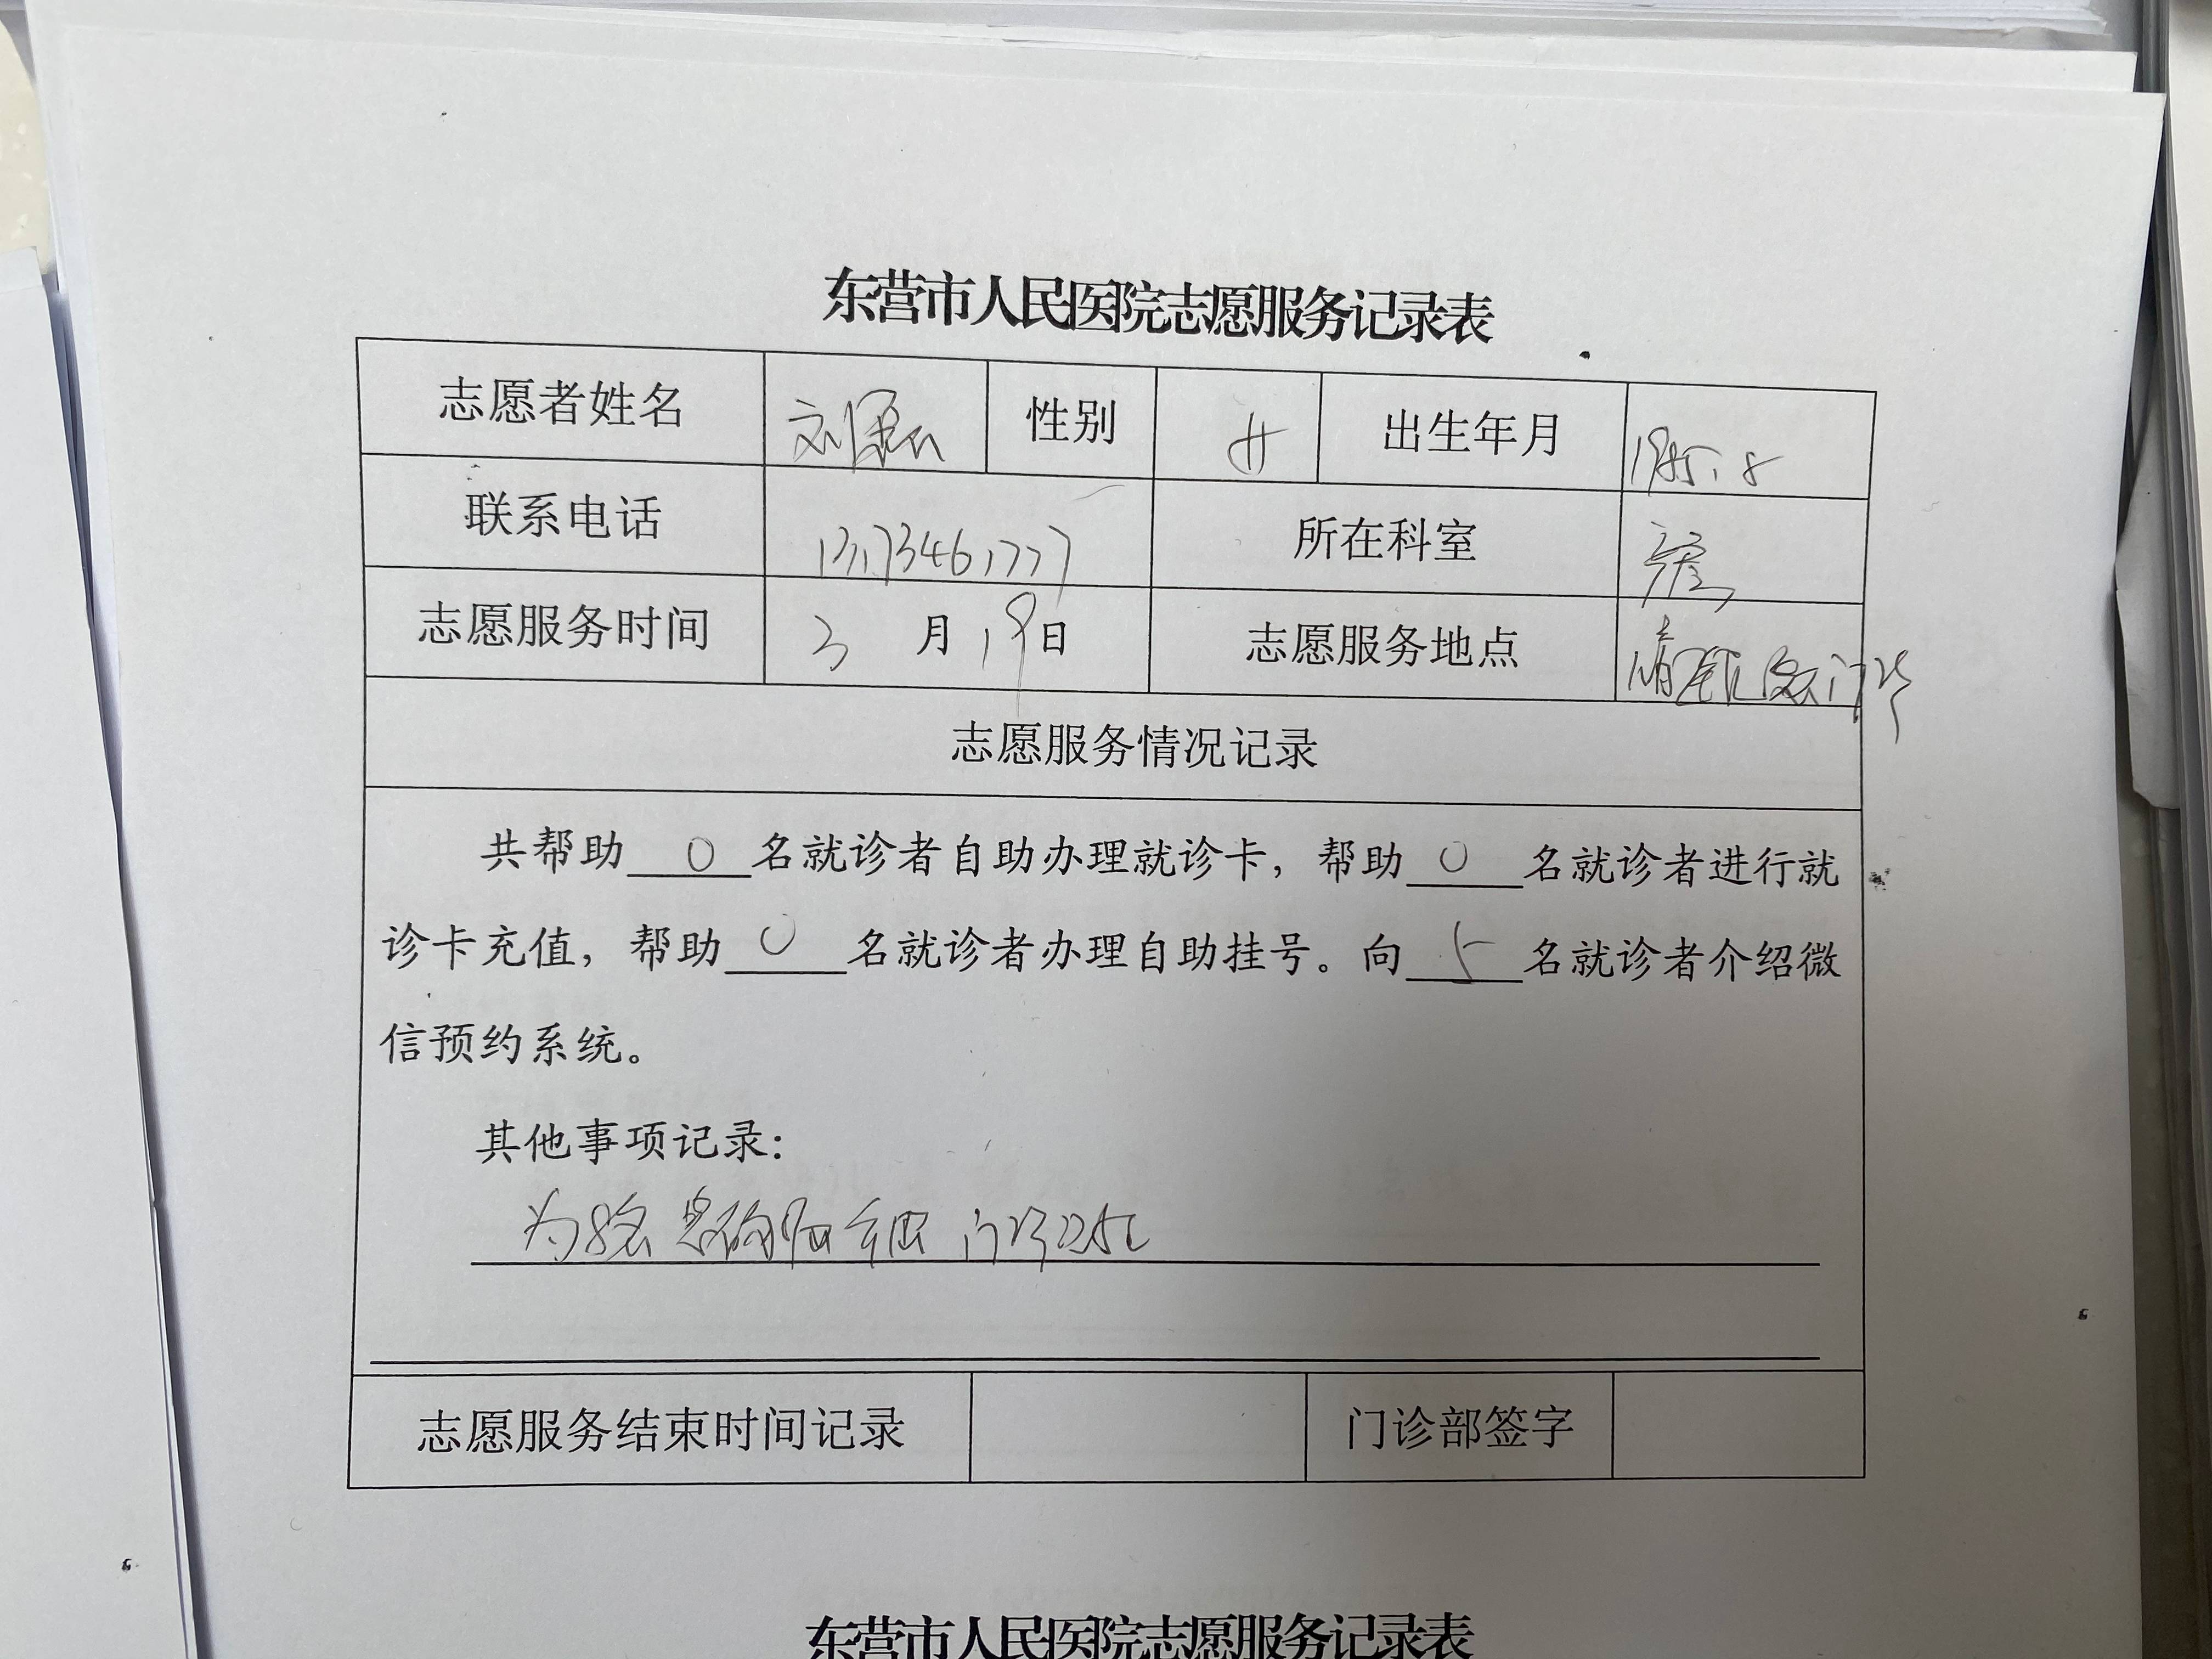 东营市人民医院志愿服务记录表
志愿者姓名 刘 性别 女 出生年月 1985.8
联系电话 13173461777 所在科室
志愿服务时间 3 月 19 日 志愿服务地点 门诊
志愿服务情况记录
共帮助 0 名就诊者自助办理就诊卡，帮助 0 名就诊者进行就
诊卡充值，帮助 0 名就诊者办理自助挂号。向 5 名就诊者介绍微
信预约系统。
其他事项记录：
为8名患者 门诊
志愿服务结束时间记录 门诊部签字
东营市人民医院志愿服务记录表